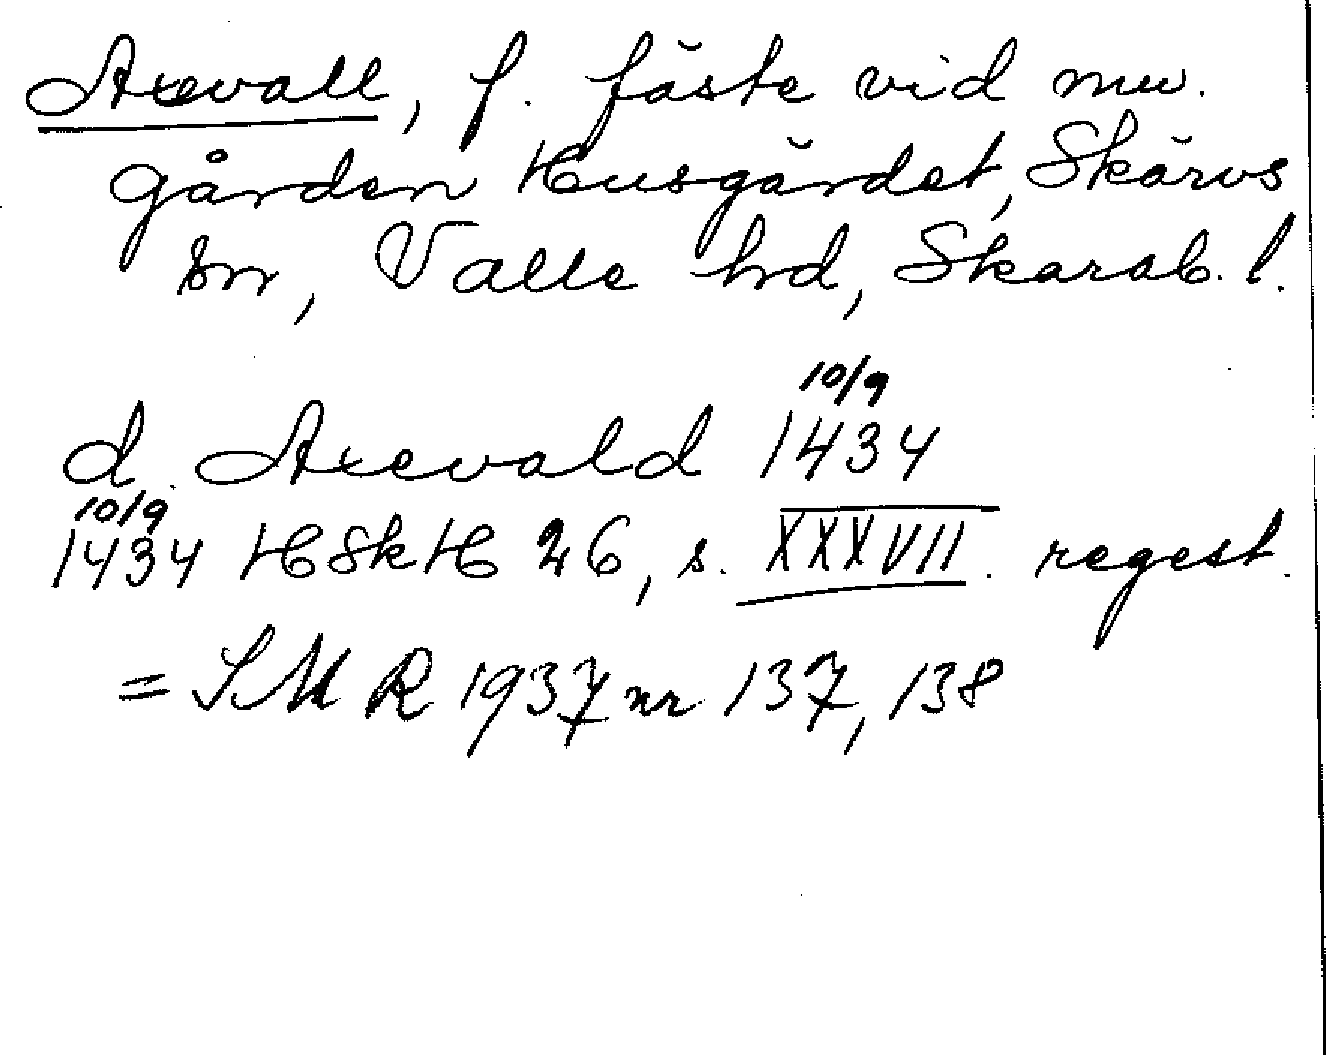 Axevall, f. fäste vid nuv.
gården Husgärdet, Skärvs
sn, Valle hd, Skarab. l.
10/9
d. Axevald 1434
10/9
1434 HSkH 26, s. XXXVII. regest.
= SMR 1937 nr 137, 138